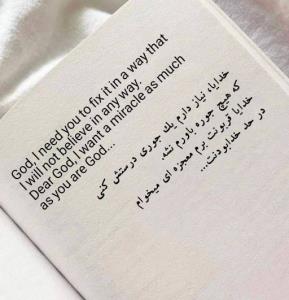 God, I need you to fix it in a way that
I will not believe in any way.
Dear God, I want a miracle as much
as you are God...
خدایا، نیاز دارم یك جوری درستش کنی
که هیچ جوره باورم نشه.
خدایا قربونت برم معجزه ای میخوام
در حد خدابودنت...